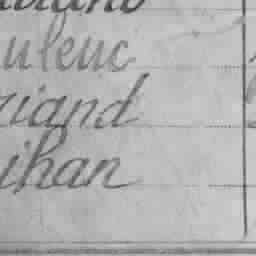 ulenc
riand
ihan